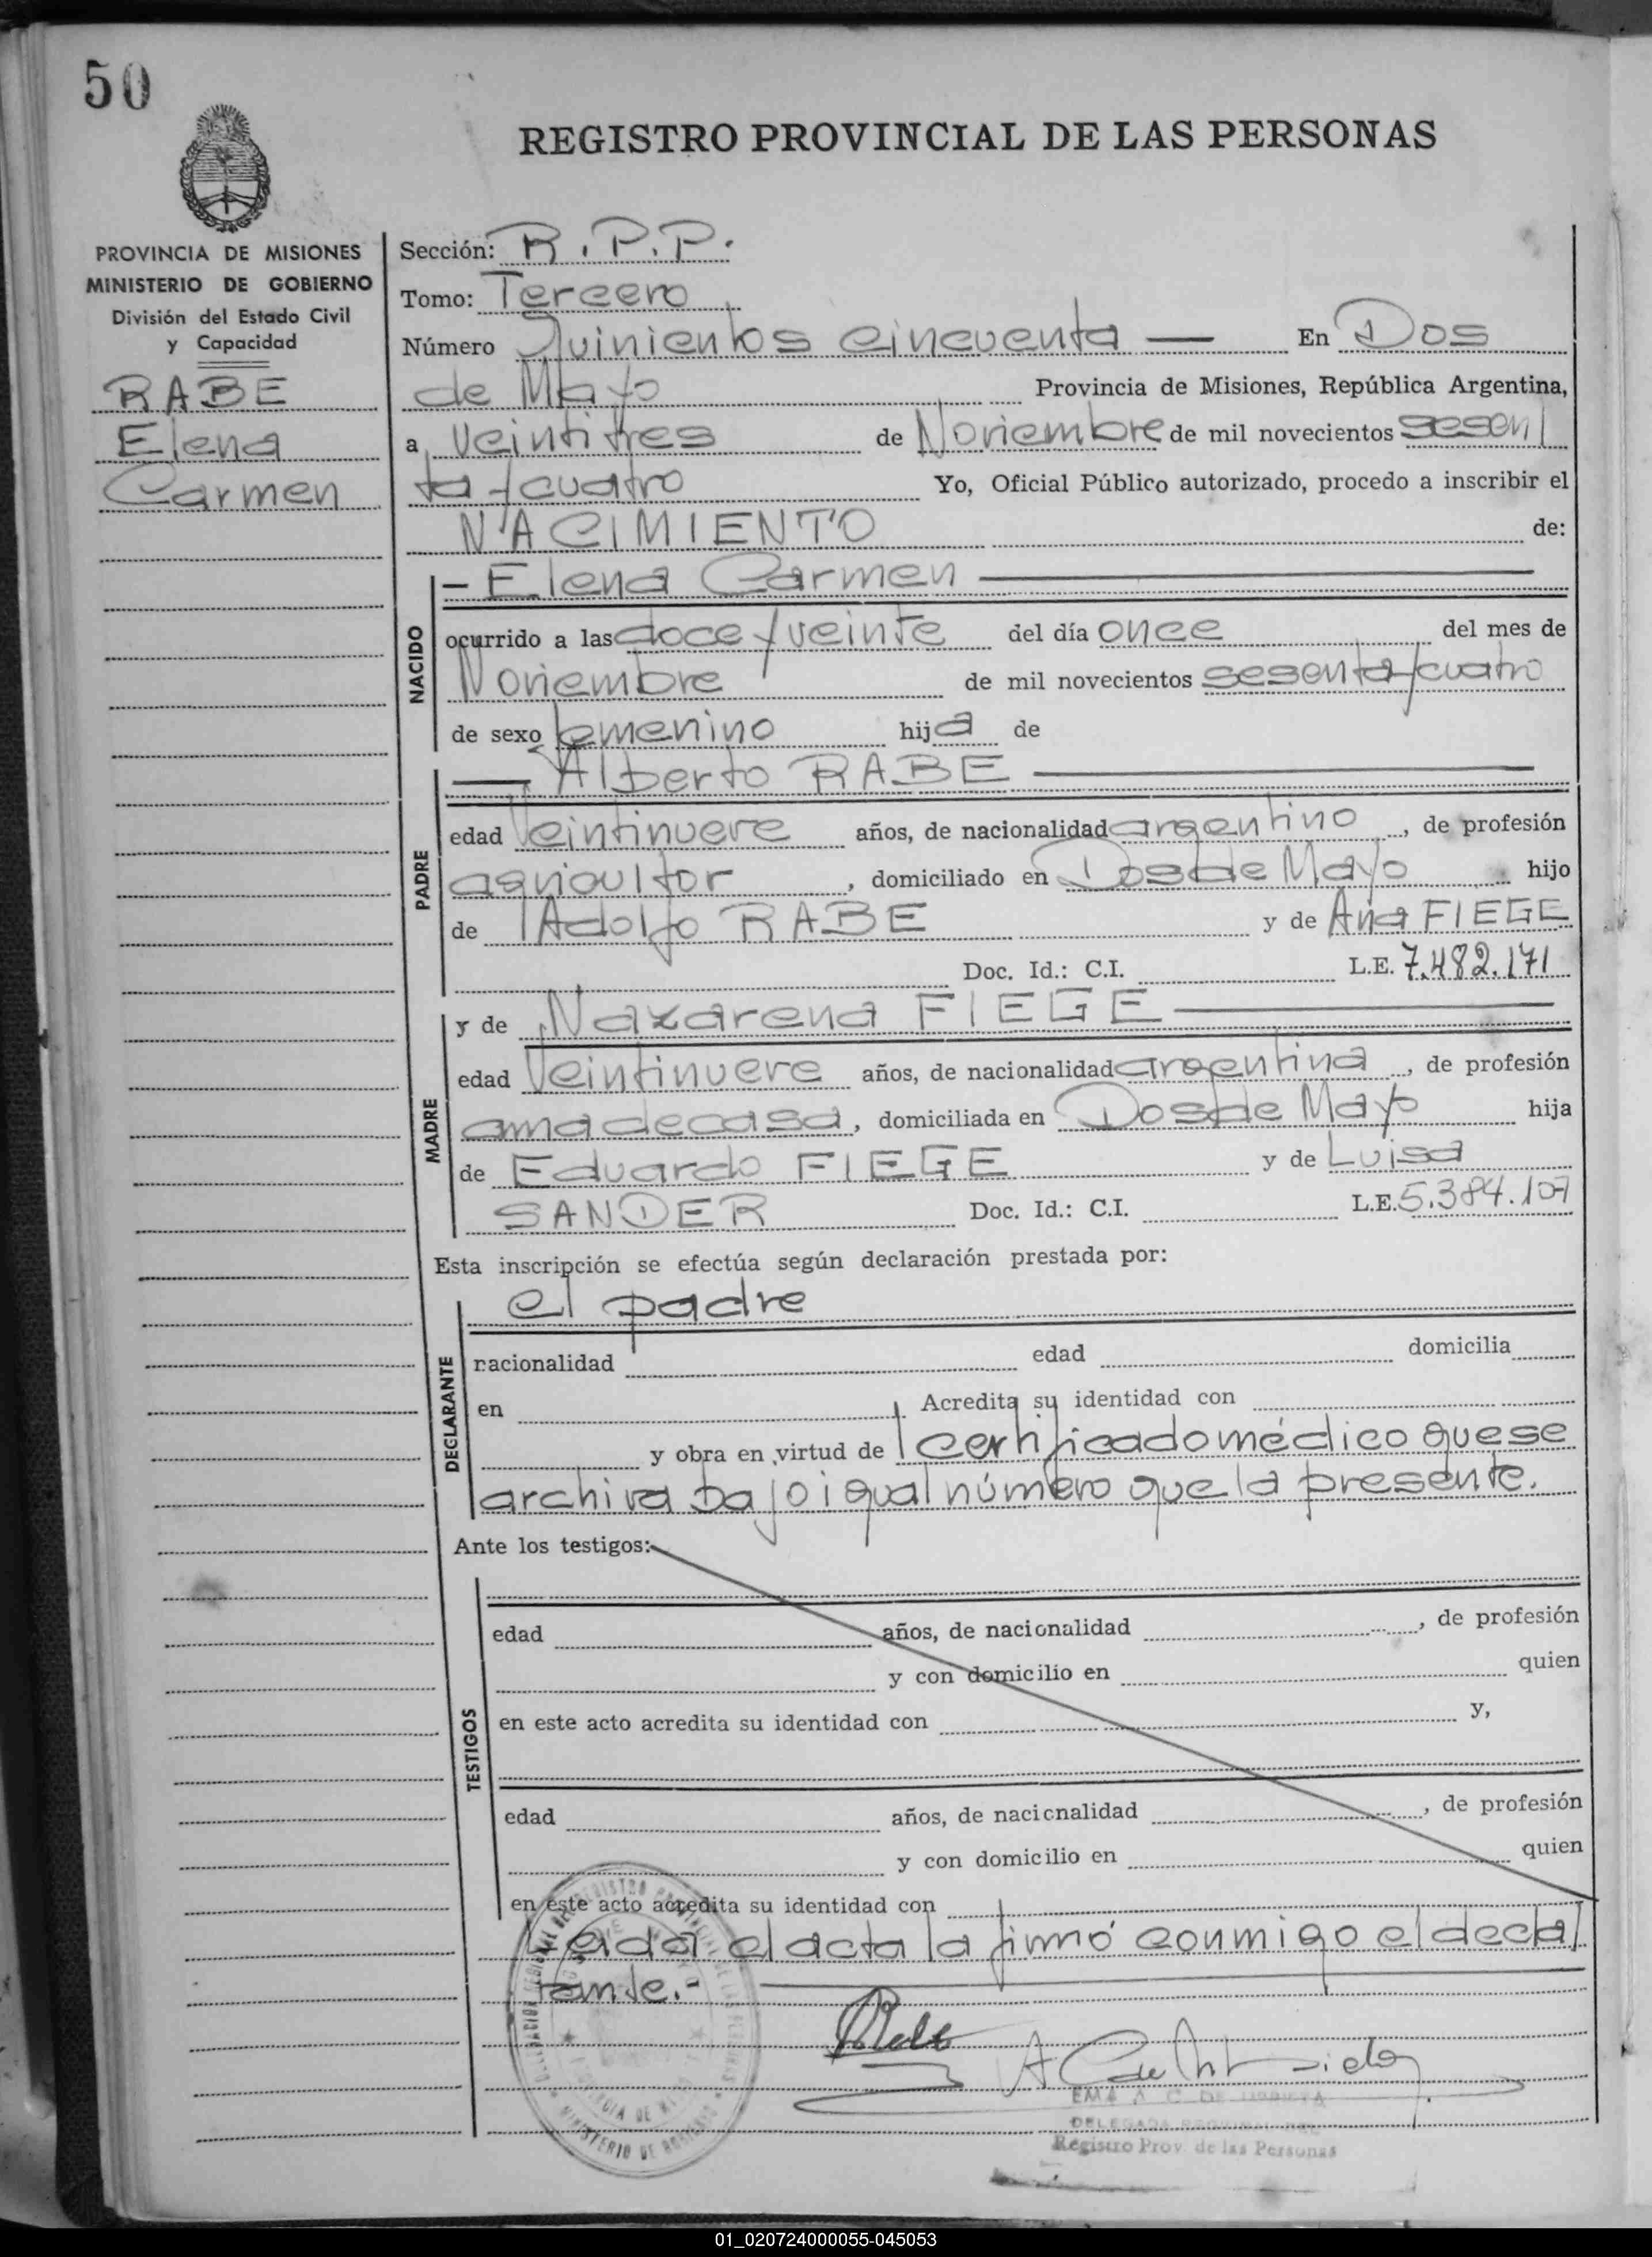 50
REGISTRO PROVINCIAL DE LAS PERSONAS
PROVINCIA DE MISIONES
MINISTERIO DE GOBIERNO
División del Estado Civil
y Capacidad
RABE
Elena
Carmen
Sección: R.P.P.
Tomo: Tercero
Número Quinientos cincuenta — En Dos
de Mayo Provincia de Misiones, República Argentina,
a veintitres de Noviembre de mil novecientos sesen
ta y cuatro Yo, Oficial Público autorizado, procedo a inscribir el
NACIMIENTO de:
NACIDO
- Elena Carmen —
ocurrido a las doce y veinte del día once del mes de
Noviembre de mil novecientos sesenta y cuatro
de sexo femenino hija de
PADRE
— Alberto RABE —
edad Veintinueve años, de nacionalidad argentino, de profesión
agricultor, domiciliado en Dos de Mayo hijo
de Adolfo RABE y de Ana FIEGE
Doc. Id.: C.I. L.E. 7.482.171
MADRE
y de Nazarena FIEGE —
edad Veintinueve años, de nacionalidad argentina, de profesión
ama de casa, domiciliada en Dos de Mayo hija
de Eduardo FIEGE y de Luisa
SANDER Doc. Id.: C.I. L.E. 5.384.107
Esta inscripción se efectúa según declaración prestada por:
DECLARANTE
el padre
nacionalidad edad domicilia
en Acredita su identidad con
y obra en virtud de certificado médico que se
archiva bajo igual número que la presente.
Ante los testigos:
TESTIGOS
edad años, de nacionalidad , de profesión
y con domicilio en quien
en este acto acredita su identidad con y,
edad años, de nacionalidad , de profesión
y con domicilio en quien
en este acto acredita su identidad con
Leida el acta la firmó conmigo el decla
rante.-
Registro Prov. de las Personas
01_020724000055-045053